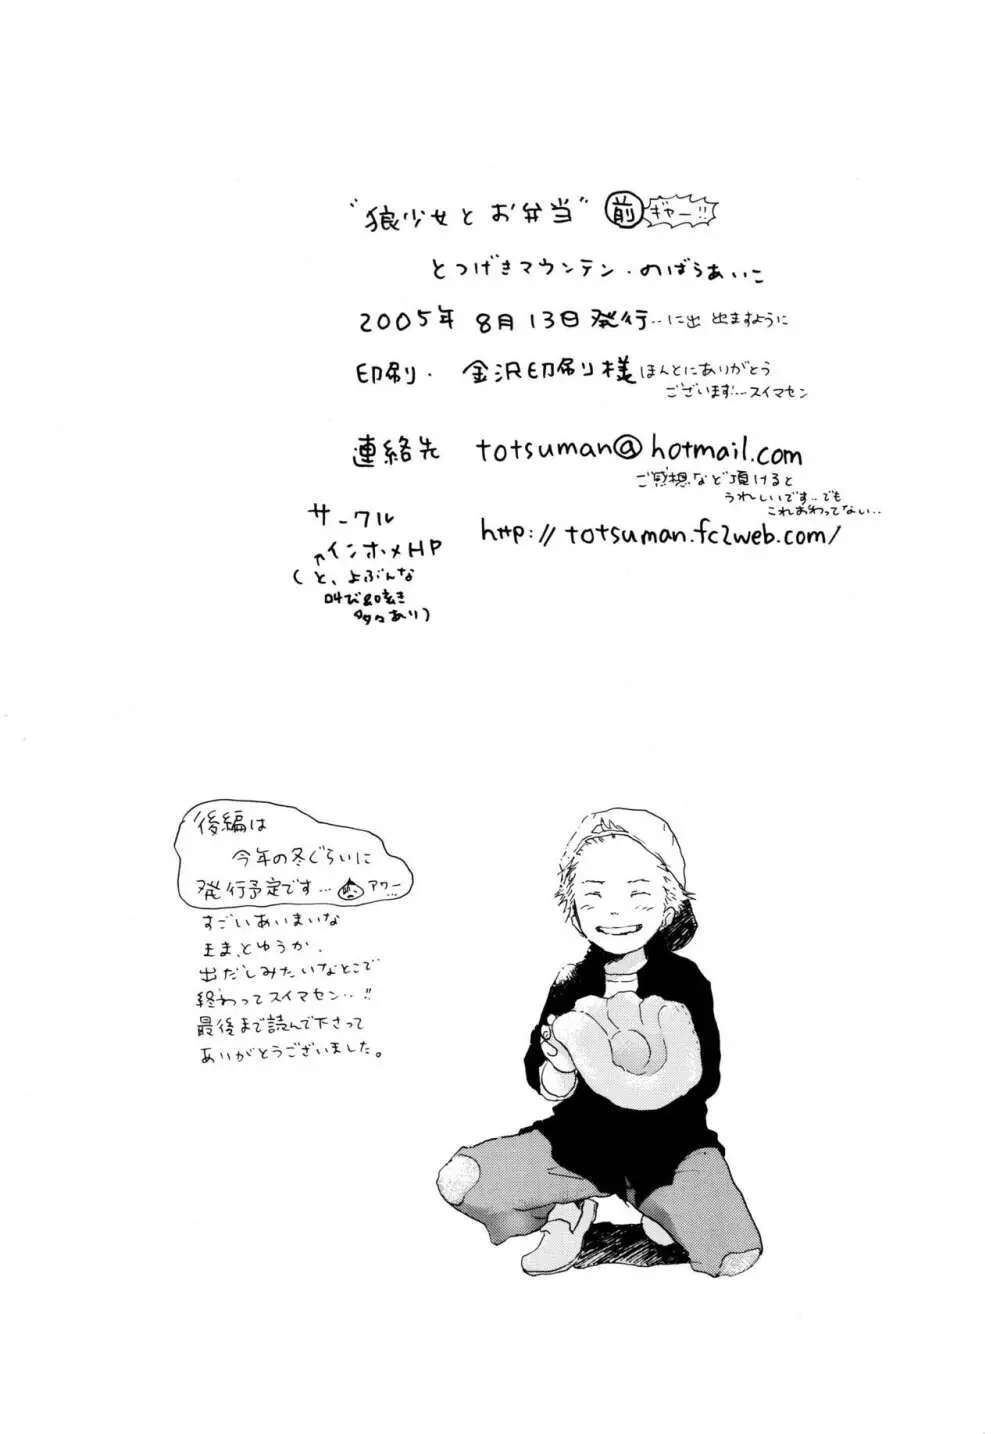 "狼少女とお弁当" 前 ギャー!!
とつげきマウンテン・のばらあいこ
2005年 8月13日発行‥に出 出ますように
印刷・ 金沢印刷様 ほんとにありがとう
ございます…スイマセン
連絡先 totsuman@hotmail.com
ご感想など頂けると
うれしいです‥でも
これおわってない‥
サークル http://totsuman.fc2web.com/
↑インホメHP
(と、よぶんな
叫び&呟き
多々あり)
後編は
今年の冬ぐらいに
発行予定です… アワー…
すごいあいまいな
まま、とゆうか、
出だしみたいなとこで
終わってスイマセン‥!!
最後まで読んで下さって
ありがとうございました。